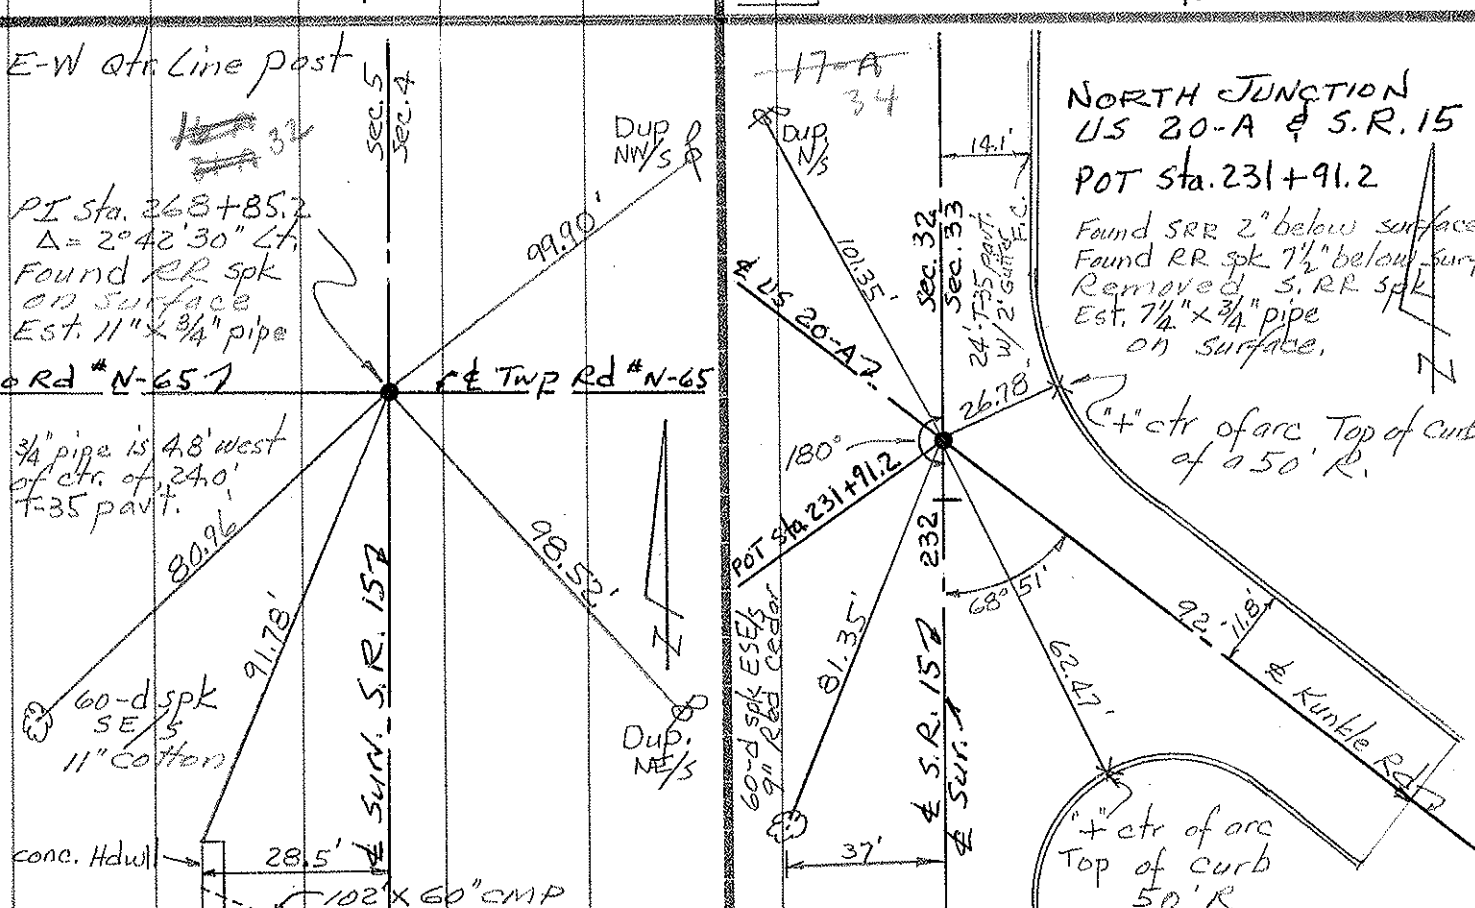 E-W Qtr. Line post
32
Sec. 5
Sec. 4
Dup
NW/S
PI Sta. 268+85.2
Δ = 2°42'30" Lt.
Found RR spk
on surface
Est. 11" x 3/4" pipe
99.90'
Rd #N-65
℄ Twp Rd #N-65
3/4" pipe is 4.8' west
of ctr. of 24.0'
T-35 pavt.
80.96'
91.78'
98.52'
60-d spk
SE/S
11" Cotton
Dup.
NE/S
℄ Surv. S.R. 15
N
conc. Hdwl
28.5'
102' x 60" CMP
17-A
34
Dup.
N/S
14.1'
NORTH JUNCTION
US 20-A & S.R. 15
POT Sta. 231+91.2
Found SRR 2" below surface
Found RR spk 7½" below sur
Removed S. RR spk
Est. 7¼" x 3/4" pipe
on surface.
N
101.35'
Sec. 32
Sec. 33
24' T-35 pavt.
w/ 2' Gutter
F.C.
℄ US 20-A
26.78'
"+" ctr of arc Top of Curb
of a 50' R.
180°
POT Sta 231+91.2
232
68°51'
60-d spk ESE/s
9" Red Cedar
81.35'
℄ S.R. 15
℄ Sur.
62.47'
92
11.8'
℄ Kunkle Rd
37'
"+" ctr of arc
Top of Curb
50' R